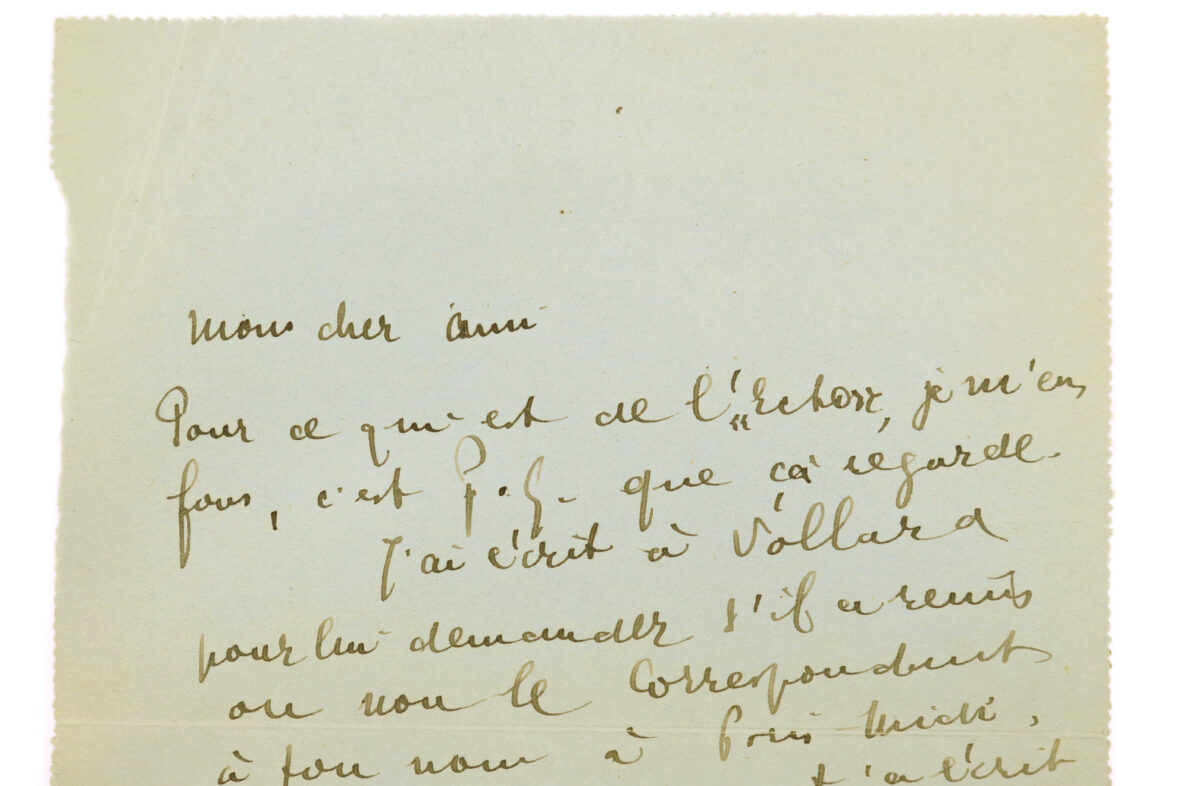 Mon cher ami
Pour ce qui est de l'"Echoss, je m'en
fous, c'est P. G. que ça regarde.
J'ai écrit à Vollard
pour lui demander s'il a remis
ou non le Correspondant
à ton nom à Paris-Midi,
t'a écrit